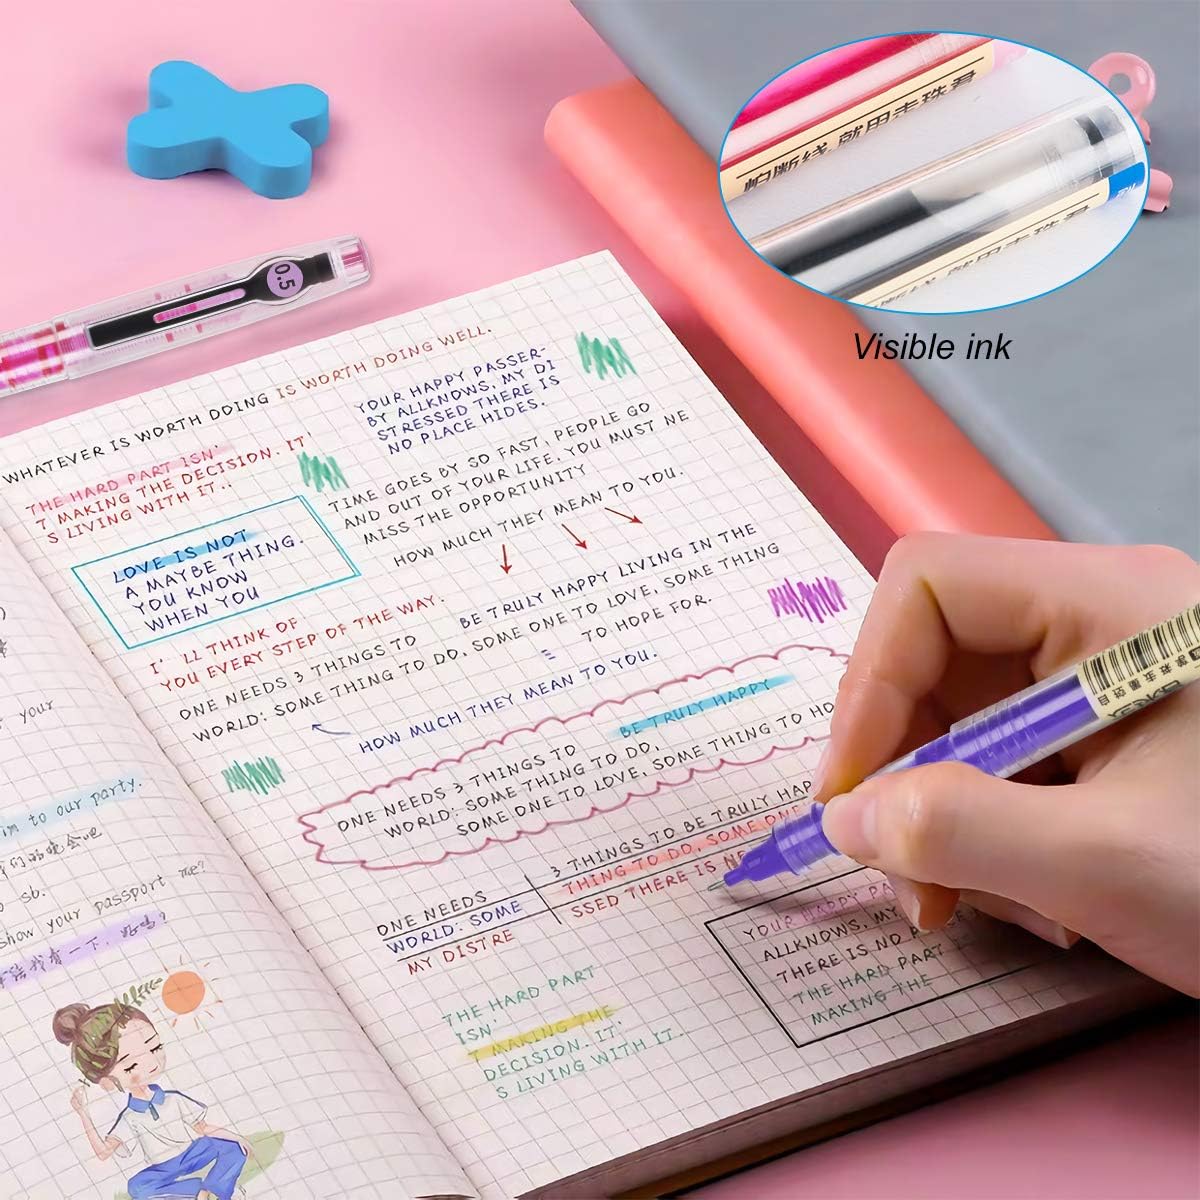 怕断线 就用走珠君
就用走珠君
Visible ink
0.5
WHATEVER IS WORTH DOING IS WORTH DOING WELL.
THE HARD PART ISN'
T MAKING THE DECISION. IT'
S LIVING WITH IT..
YOUR HAPPY PASSER-
BY ALLKNOWS, MY DI
STRESSED THERE IS
NO PLACE HIDES.
TIME GOES BY SO FAST, PEOPLE GO
AND OUT OF YOUR LIFE. YOU MUST NE
MISS THE OPPORTUNITY
HOW MUCH THEY MEAN TO YOU.
LOVE IS NOT
A MAYBE THING.
YOU KNOW
WHEN YOU
I' LL THINK OF
YOU EVERY STEP OF THE WAY.
BE TRULY HAPPY LIVING IN THE
ONE NEEDS 3 THINGS TO
WORLD: SOME THING TO DO, SOME ONE TO LOVE, SOME THING
TO HOPE FOR.
HOW MUCH THEY MEAN TO YOU.
BE TRULY HAPPY
ONE NEEDS 3 THINGS TO
WORLD: SOME THING TO DO,
SOME ONE TO LOVE, SOME THING TO HO
3 THINGS TO BE TRULY HAP
THING TO DO, SOME ONE
SSED THERE IS
ONE NEEDS
WORLD: SOME
MY DISTRE
THE HARD PART
ISN'
T MAKING THE
DECISION. IT'
S LIVING WITH IT..
YOUR HAPPY PA
ALLKNOWS, MY
THERE IS NO
THE HARD PART
MAKING THE
your
im to our party.
们的晚会吧
o sb.
show your passport me?
我看一下, 好吗?